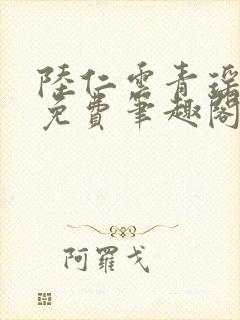 陸仁雲青瑤
免費筆趣閣
阿羅戈